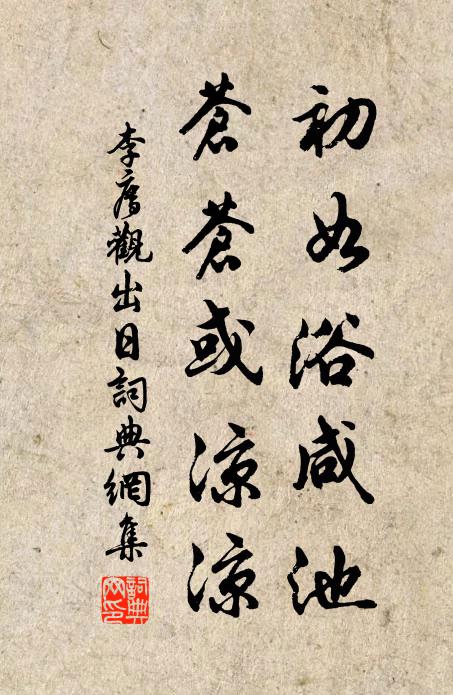 初如浴咸池
蒼蒼或涼涼
李廌觀出日詞典網集